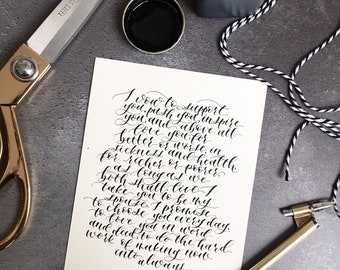 I vow to support
you, push you, inspire
you, and above all
love you, for
better or worse, in
sickness and health
for richer or poorer,
as long as we
both shall live. I
take you to be my
spouse. I promise
to choose you everyday,
to love you in word
and deed, to do the hard
work of making now
into always